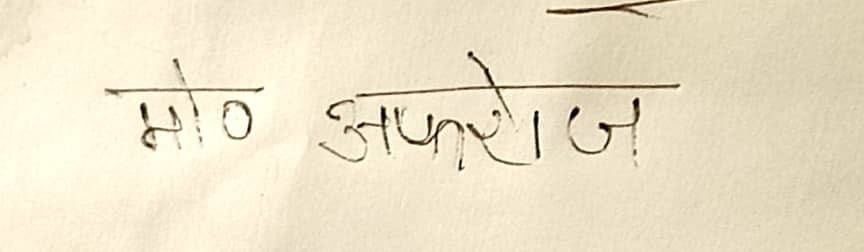 मो० अफरोज